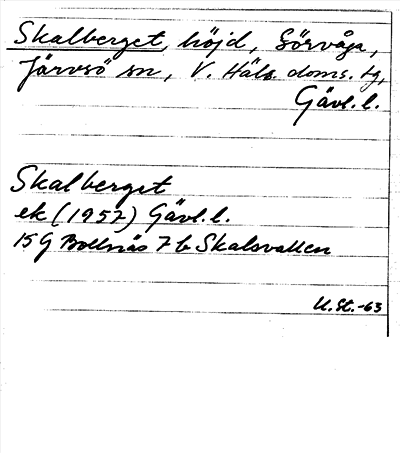 Skalberget, höjd, Sörvåga,
Järvsö sn, V. Häls. doms. tg,
Gävl. l.
Skalberget
ek (1957) Gävl. l.
15G Bollnäs 7b Skalsvallen
U.St.-63